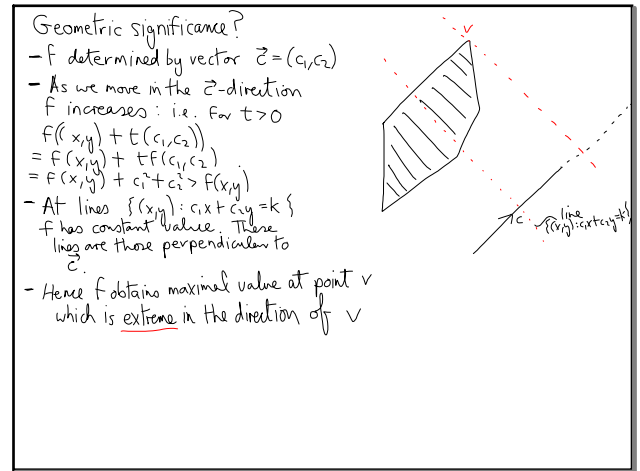 Geometric significance?
- f determined by vector c⃗ = (c₁,c₂)
- As we move in the c⃗-direction
f increases : i.e. For t>0
f((x,y) + t(c₁,c₂))
= f(x,y) + tf(c₁,c₂)
= f(x,y) + c₁²+c₂² > f(x,y)
- At lines {(x,y) : c₁x + c₂y = k}
f has constant value. These
lines are those perpendicular to
c⃗.
- Hence f obtains maximal value at point v
which is extreme in the direction of v
v
c
line
{(x,y) : c₁x+c₂y=k}